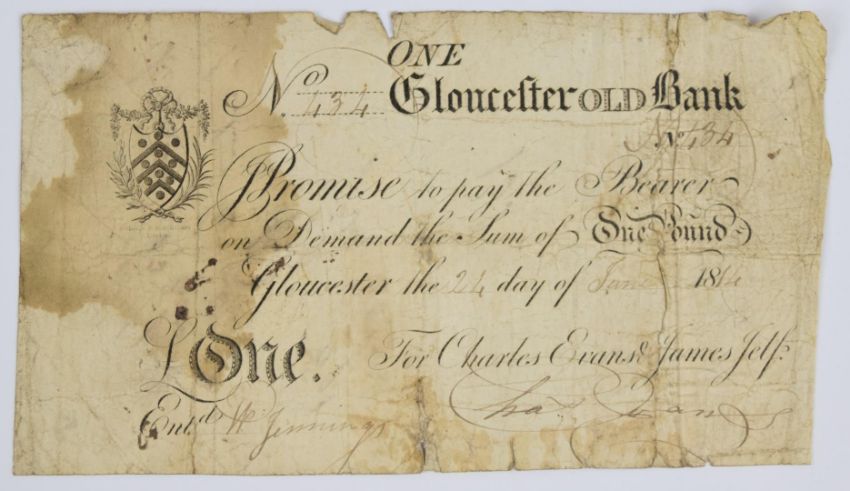 ONE
No. 434 Gloucester OLD Bank
No. 434
I Promise to pay the Bearer
on Demand the Sum of One Pound
Gloucester the 24 day of June 1814
£One. For Charles Evans & James Jelf.
Entd. Wm Jennings Chas Evans